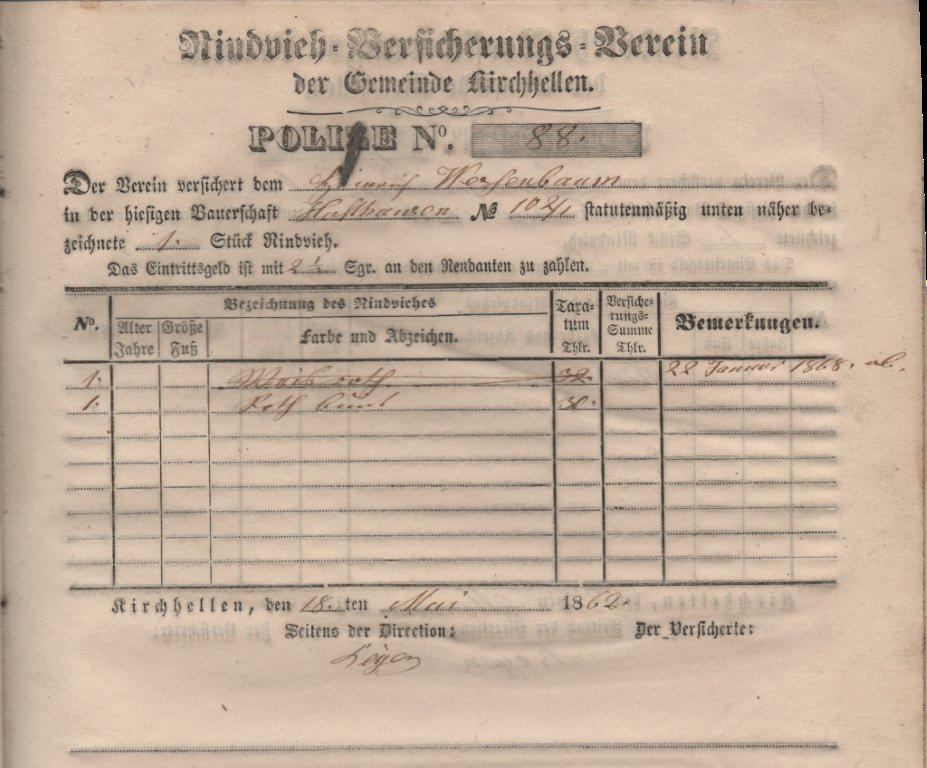 Rindvieh-Versicherungs-Verein
der Gemeinde Kirchhellen.
POLIZE No. 88.
Der Verein versichert dem Heinrich
in der hiesigen Bauerschaft No 102/1 statutenmäßig unten näher be-
zeichnete 1. Stück Rindvieh.
Das Eintrittsgeld ist mit 2 1/2 Sgr. an den Rendanten zu zahlen.
No. Bezeichnung des Rindviehes Taxa-tum Thlr. Versiche-rungs-Summe Thlr. Bemerkungen.
Alter Jahre Größe Fuß Farbe und Abzeichen.
1. 22 Januar 1868. ab.
1. Roth bunt 30.
Kirchhellen, den 18. ten Mai 1862.
Seitens der Direction: Der Versicherte: